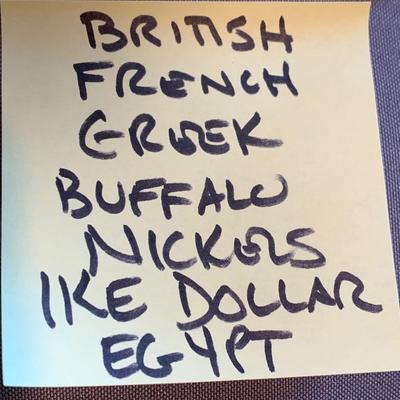 BRITISH
FRENCH
GREEK
BUFFALO
NICKELS
IKE DOLLAR
EGYPT